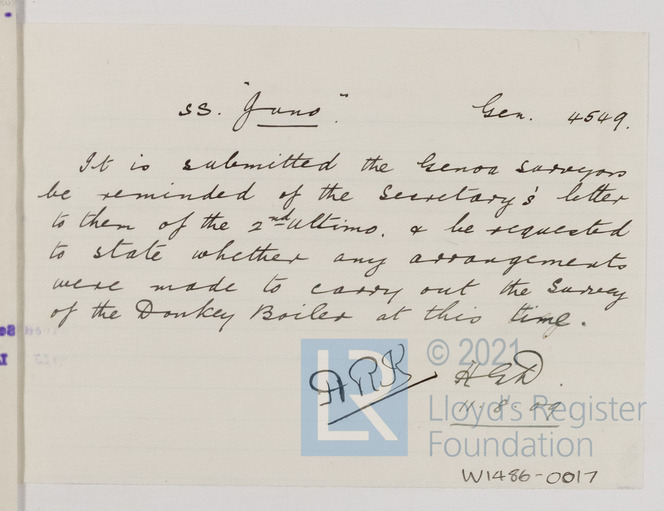 ss. "Juno". Gen. 4549.
It is submitted the Genoa Surveyors
be reminded of the Secretary's letter
to them of the 2nd Ultimo, & be requested
to state whether any arrangements
were made to carry out the Survey
of the Donkey Boiler at this time.
HGD.
11.8.09
© 2021
LR
Lloyd's Register
Foundation
W1486-0017